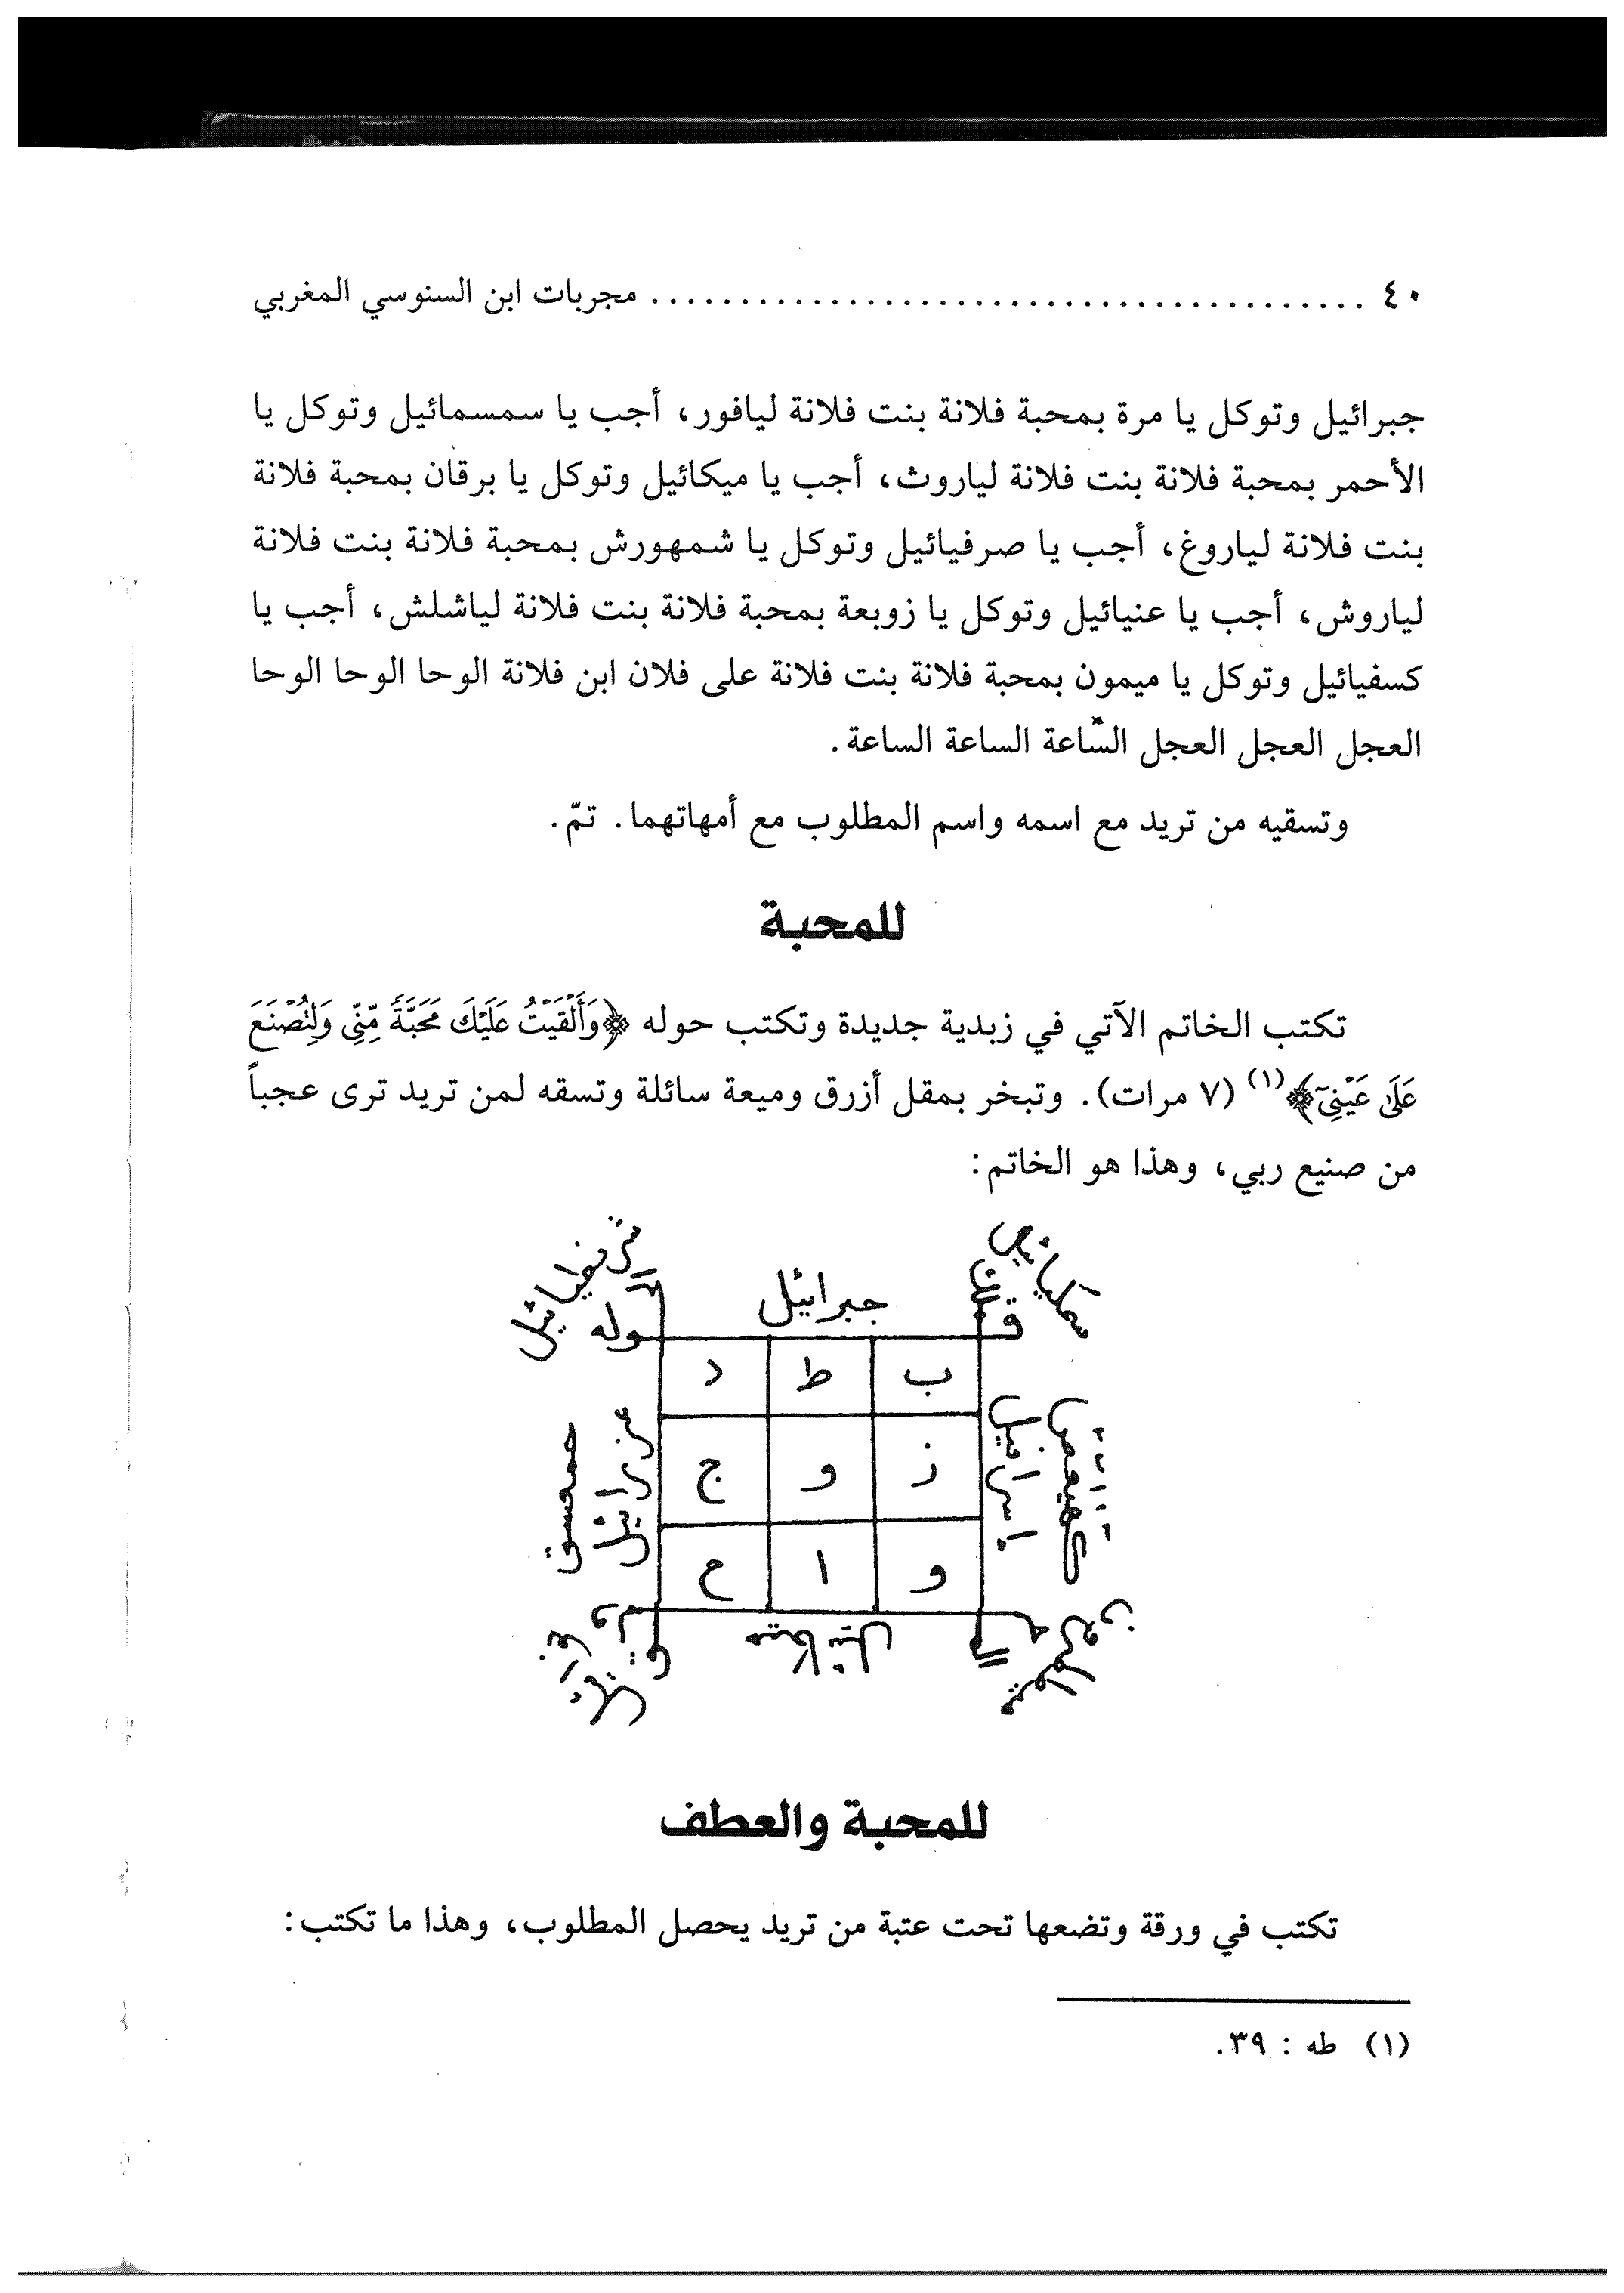 ٤٠ ........................................ مجربات ابن السنوسي المغربي
جبرائيل وتوكل يا مرة بمحبة فلانة بنت فلانة ليافور، أجب يا سمسمائيل وتوكل يا
الأحمر بمحبة فلانة بنت فلانة لياروث، أجب يا ميكائيل وتوكل يا برقان بمحبة فلانة
بنت فلانة لياروغ، أجب يا صرفيائيل وتوكل يا شمهورش بمحبة فلانة بنت فلانة
لياروش، أجب يا عنيائيل وتوكل يا زوبعة بمحبة فلانة بنت فلانة لياشلش، أجب يا
كسفيائيل وتوكل يا ميمون بمحبة فلانة بنت فلانة على فلان ابن فلانة الوحا الوحا الوحا
العجل العجل العجل الساعة الساعة الساعة.
وتسقيه من تريد مع اسمه واسم المطلوب مع أمهاتهما. تمّ.
للمحبة
تكتب الخاتم الآتي في زبدية جديدة وتكتب حوله ﴿وَأَلْقَيْتُ عَلَيْكَ مَحَبَّةً مِّنِّي وَلِتُصْنَعَ
عَلَىٰ عَيْنِيٓ﴾(١) (٧ مرات). وتبخر بمقل أزرق وميعة سائلة وتسقه لمن تريد ترى عجباً
من صنيع ربي، وهذا هو الخاتم:
جبرائيل
قوله
ب ط د
إسرافيل كهيعص
ز و ج
عزرائيل حمعسق
و ا ح
ميكائيل
للمحبة والعطف
تكتب في ورقة وتضعها تحت عتبة من تريد يحصل المطلوب، وهذا ما تكتب:
(١) طه : ٣٩.